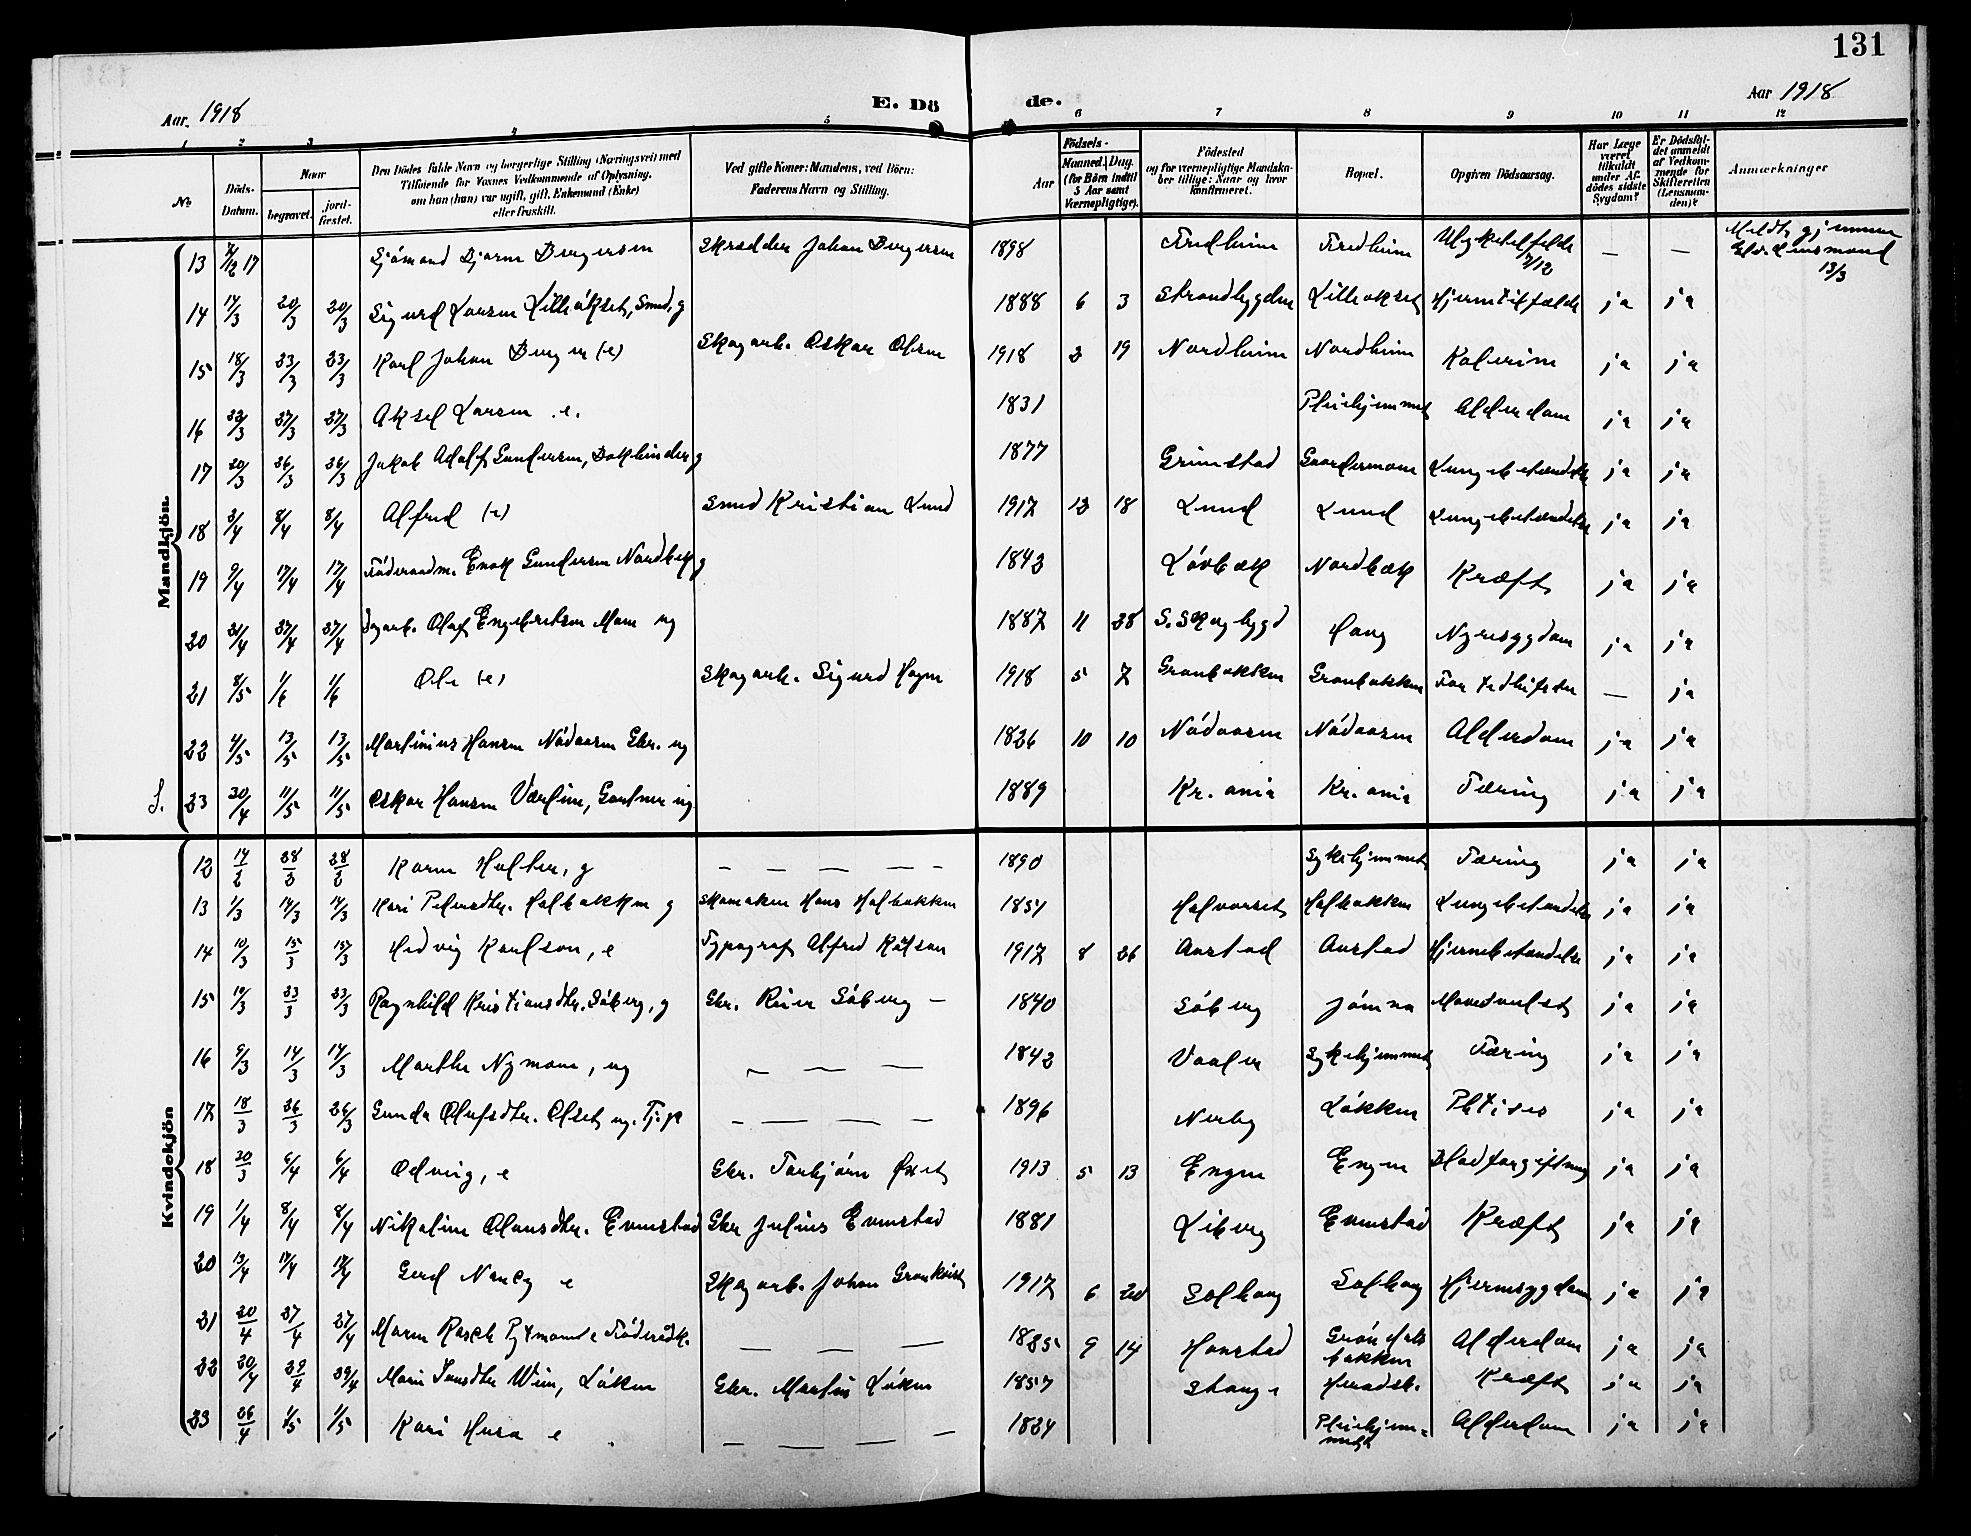 131
Aar 1918
E. Dö
de.
Aar 1918
1 2 3 4 5 6 7 8 9 10 11 12
No Döds-Datum. Naar begravet. jord-fæstet. Den Dödes fulde Navn og borgerlige Stilling (Næringsvei) med Tilföiende for Voxnes Vedkommende af Oplysning, om han (hun) var ugift, gift, Enkemand (Enke) eller fraskilt. Ved gifte Koner: Mandens, ved Börn: Faderens Navn og Stilling. Födsels- Aar Maaned. Dag. (for Börn indtil 5 Aar samt Værnepligtige). Födested og for værnepligtige Mandskaber tillige: Naar og hvor konfirmeret. Bopæl. Opgiven Dödsaarsag. Har Læge været tilkaldt under Afdödes sidste Sygdom? Er Dödsfaldet anmeldt af Vedkommende for Skifteretten (Lensmanden)? Anmærkninger
Mandkjön
13 17 Sjömand Bjarne Bergersen Skrædder Johan Bergersen 1898 Fredheim Fredheim 7/12 — — 13/3
14 17/3 20/3 20/3 Sigurd Larsen Lilleökset, Smed, g 1888 6 3 Strandbygden Lilleökset ja ja
15 18/3 23/3 23/3 Karl Johan Berger (e) Skogarb. Oskar Olsen 1918 2 19 Nordheim Nordheim Kolerine ja ja
16 22/3 27/3 27/3 Aksel Larsen e. 1831 Pleiehjemmet Alderdom ja ja
17 20/3 26/3 26/3 Jakob Adolf Gundersen, Bokbinder g 1877 Grimstad Gaardermoen Lungebetændelse ja ja
18 3/4 8/4 8/4 Alfred (e) Smed Kristian Lund 1917 12 18 Lund Lund Lungebetændelse ja ja
19 9/4 17/4 17/4 Föderaadm. Enok Gundersen Nordbæk g 1843 Lövbæk Nordbæk Kræft ja ja
20 21/4 27/4 27/4 Olaf Engebretsen Moen ug 1887 11 28 S. Skogbygd Haug Nyresygdom ja ja
21 8/5 1/6 1/6 Ole (e) Skogarb. Sigurd Hagen 1918 5 7 Granbakken Granbakken For tidlig födsel — ja
22 4/5 13/5 13/5 Martinius Hansen Nödaasen Gbr. ug 1826 10 10 Nödaasen Nödaasen Alderdom ja ja
S. 23 30/4 11/5 11/5 Oskar Hansen, Gartner ug 1889 Kr.ania Kr.ania Tæring ja ja
Kvindekjön
12 28/3 Karen Holter, g — — — — 1890 Sykehjemmet Tæring ja ja
13 1/3 14/3 14/3 Kari Petersdtr. Holbakken g Skomaker Hans Holbakken 1854 Halvorset Holbakken Lungebetændelse ja ja
14 10/3 15/3 15/3 Hedvig Karlson, e Typograf Alfred 1917 8 26 Aarstad Aarstad Hjernebetændelse ja ja
15 19/3 23/3 23/3 Ragnhild Kristiansdtr. Söberg, g Gbr. Reier Söberg — 1840 Söberg Jömna ja ja
16 9/3 14/3 14/3 Marthe Nymoen, ug — — — 1842 Vaaler Sykehjemmet Tæring ja ja
17 18/3 26/3 26/3 Gunda Olufsdtr. Olset ug. Tj.p. — — — — 1896 Nerby Lökken Phtises ja ja
18 30/3 6/4 6/4 Odveig, e Gbr. Torbjörn Öxet 1913 5 13 Engen Engen Blodforgiftning ja ja
19 1/4 8/4 8/4 Nikoline Olausdtr. Evenstad Gbr Julius Evenstad 1881 Liberg Evenstad Kræft ja ja
20 13/4 17/4 17/4 Gerd Nancy e Skogarb. Johan Grankvist 1917 6 20 Solhaug Solhaug Hjernesygdom ja ja
21 20/4 27/4 27/4 Maren Rasch e Föderaadk. — — — 1825 9 14 Hanstad Gröndalsbakken Alderdom ja ja
22 20/4 29/4 29/4 Marie Wien, Löken Gbr. Martin Löken 1857 Stange Kræft ja ja
23 26/4 1/5 1/5 Kari Huse e — — — — 1824 Pleiehjemmet Alderdom ja ja